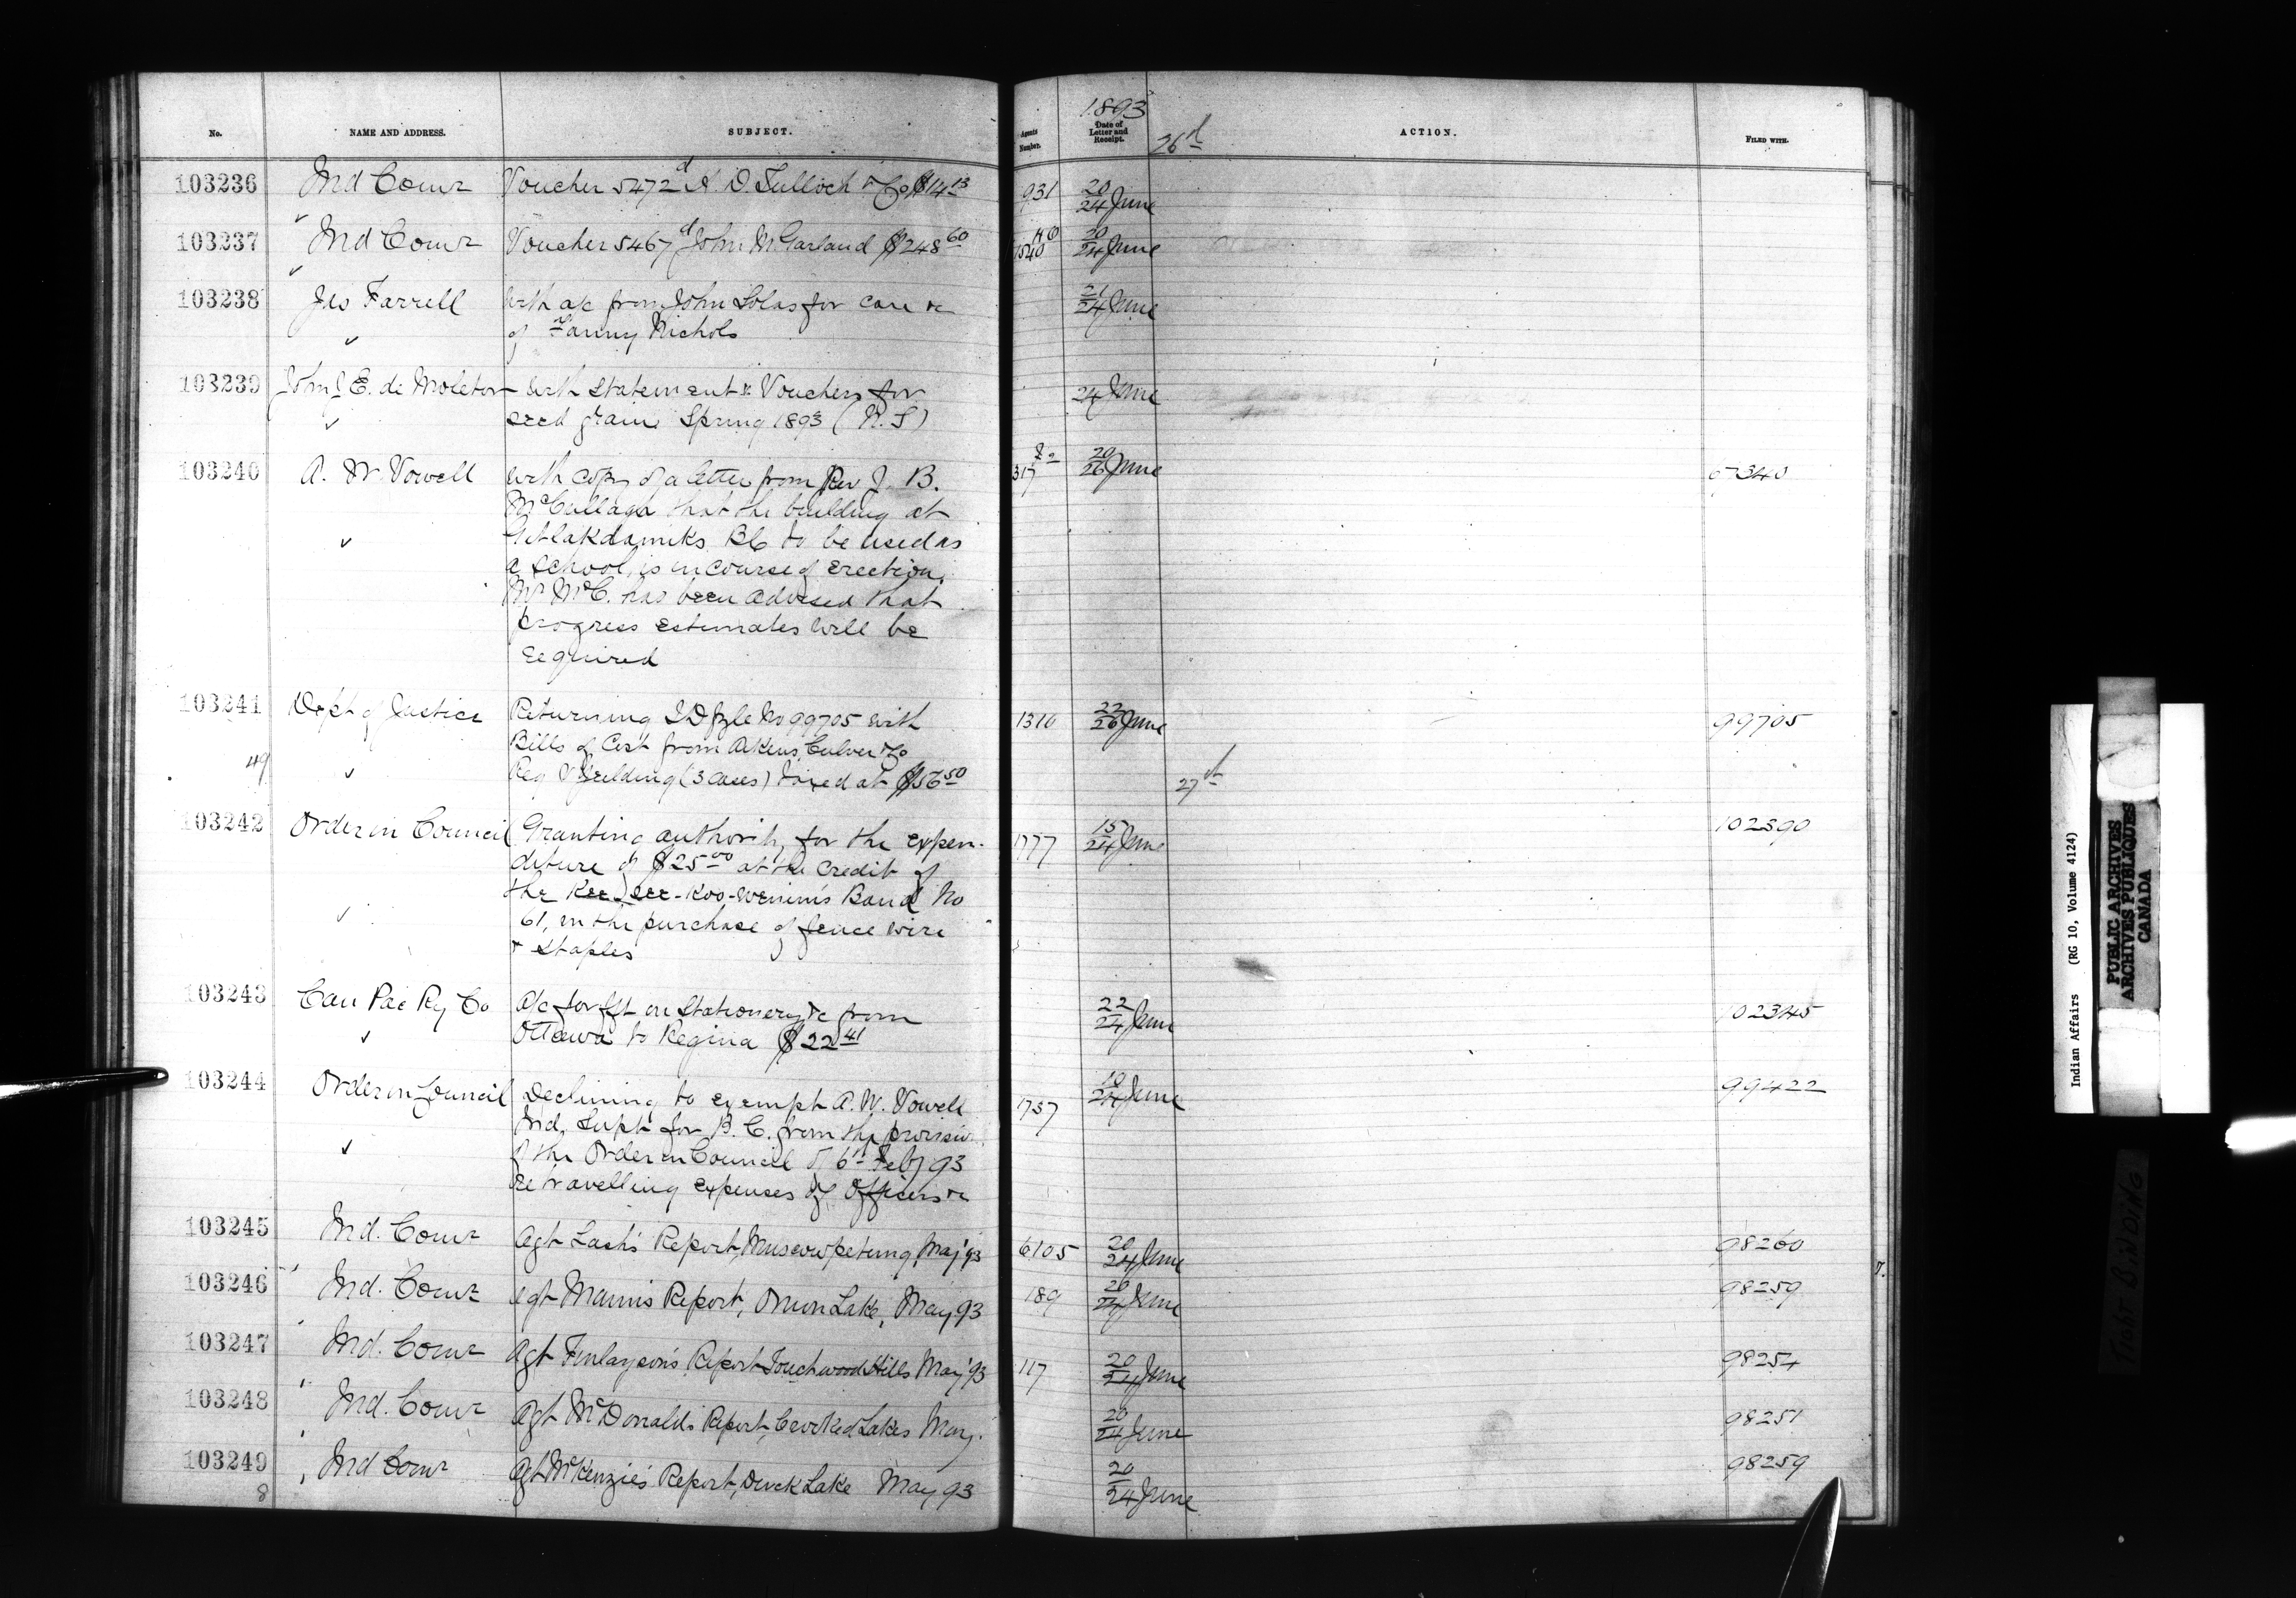 No. NAME AND ADDRESS. SUBJECT. Agents Number. 1893 Date of Letter and Receipt. 26th ACTION. FILED WITH.
103236 Ind Comr Voucher 5472 d A. D. Tulloch & Co $14 13 931 20/24 June
103237 Ind Comr Voucher 5467 d John McGarland $248 60 1540 20/24 June
103238 Jas Farrell With a/c from John Lolas for care &c 21/24 June
of Fanny Nichols
103239 John J E. de Molitor With statement & Vouchers for 24 June
seed grain Spring 1893 (N.S)
103240 A. W. Vowell With copy of a letter from Rev J. B. 317 20/26 June
McCullagh that the building at
Gitlakdamiks BC to be used as
a school, is in course of erection.
Mr McC. has been advised that
progress estimates will be
required
103241 Dept of Justice Returning I D file No 99705 with 1310 22/26 June 99705
Bills of Cost from Akens Culver & Co
49 Reg V Fielding (3 cases) taxed at $56 50 27th
103242 Order in Council Granting authority for the expen- 1777 15/24 June 102390
diture of $25 00 at the credit of
the Kee-see-koo-wenin's Band No
61, in the purchase of fence wire
& staples
103243 Can Pac Ry Co A/c for fgt on Stationery &c from 22/24 June 102345
Ottawa to Regina $22 41
103244 Order in Council Declining to exempt A. W. Vowell 1757 10/24 June 99422
Ind. Supt for B. C. from the provision
of the Order in Council of 6th Feby 93
re travelling expenses of Officers &c
103245 Ind. Comr Agt Lash's Report, Muscowpetung, May '93 6105 20/24 June 98260
103246 Ind. Comr Agt Mann's Report, Onion Lake, May 93 189 20/24 June 98259
103247 Ind. Comr Agt Finlayson's Report Touchwood Hills May '93 117 20/24 June 98254
103248 Ind. Comr Agt McDonald's Report, Crooked Lakes May. 20/24 June 98251
103249 Ind Comr Agt McKenzie's Report, Duck Lake May 93 20/24 June 98259
8
Indian Affairs (RG 10, Volume 4124)
PUBLIC ARCHIVES
ARCHIVES PUBLIQUES
CANADA
TIGHT BINDING